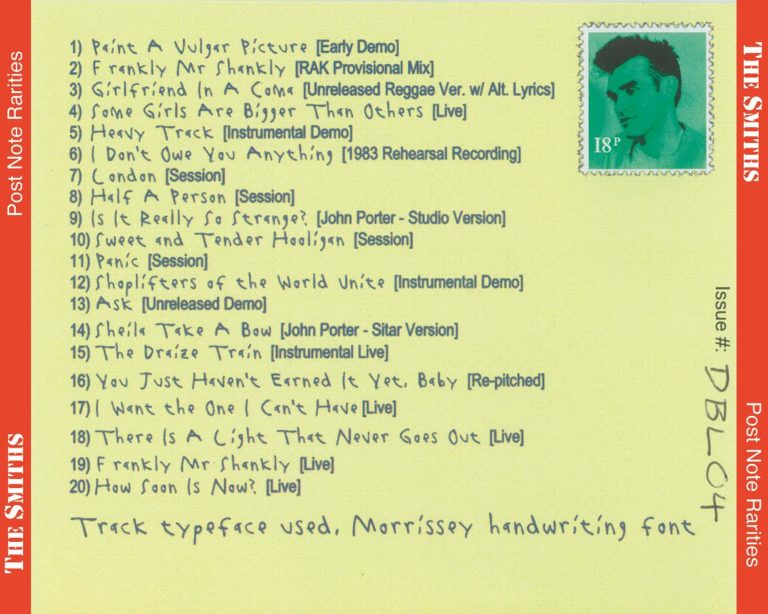 Post Note Rarities
THE SMITHS
1) Paint A Vulgar Picture [Early Demo]
2) Frankly Mr Shankly [RAK Provisional Mix]
3) Girlfriend In A Coma [Unreleased Reggae Ver. w/ Alt. Lyrics]
4) Some Girls Are Bigger Than Others [Live]
5) Heavy Track [Instrumental Demo]
6) I Don't Owe You Anything [1983 Rehearsal Recording]
7) London [Session]
8) Half A Person [Session]
9) Is It Really So Strange? [John Porter - Studio Version]
10) Sweet and Tender Hooligan [Session]
11) Panic [Session]
12) Shoplifters of the World Unite [Instrumental Demo]
13) Ask [Unreleased Demo]
14) Sheila Take A Bow [John Porter - Sitar Version]
15) The Draize Train [Instrumental Live]
16) You Just Haven't Earned It Yet, Baby [Re-pitched]
17) I Want the One I Can't Have [Live]
18) There Is A Light That Never Goes Out [Live]
19) Frankly Mr Shankly [Live]
20) How Soon Is Now? [Live]
Track typeface used, Morrissey handwriting font
18P
Issue #: DBL04
THE SMITHS
Post Note Rarities